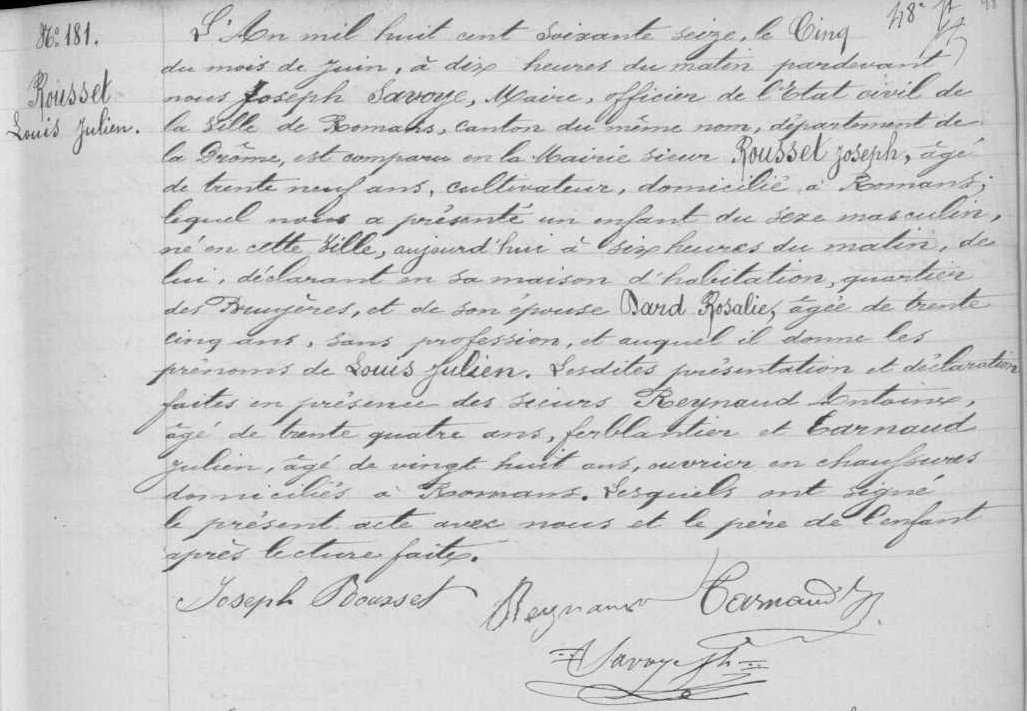 48e ft
N° 181.
Rousset
Louis Julien.
L'An mil huit cent soixante seize, le Cinq
du mois de Juin, à dix heures du matin pardevant
nous Joseph Savoye, Maire, officier de l'Etat civil de
la Ville de Romans, canton du même nom, département de
la Drôme, est comparu en la Mairie sieur Rousset Joseph, âgé
de trente neuf ans, cultivateur, domicilié à Romans;
lequel nous a présenté un enfant du sexe masculin,
né en cette Ville, aujourd'hui à six heures du matin, de
lui, déclarant en sa maison d'habitation, quartier
des Bruyères, et de son épouse Dard Rosalie, âgée de trente
cinq ans, sans profession, et auquel il donne les
prénoms de Louis Julien. Lesdites présentation et déclaration
faites en présence des sieurs Reynaud Antoine,
âgé de trente quatre ans, ferblantier et Tarnaud
Julien, âgé de vingt huit ans, ouvrier en chaussures
domiciliés à Romans. Lesquels ont signé
le présent acte avec nous et le père de l'enfant
après lecture faite.
Joseph Rousset Reynaud Tarnaud J
Savoye Jh